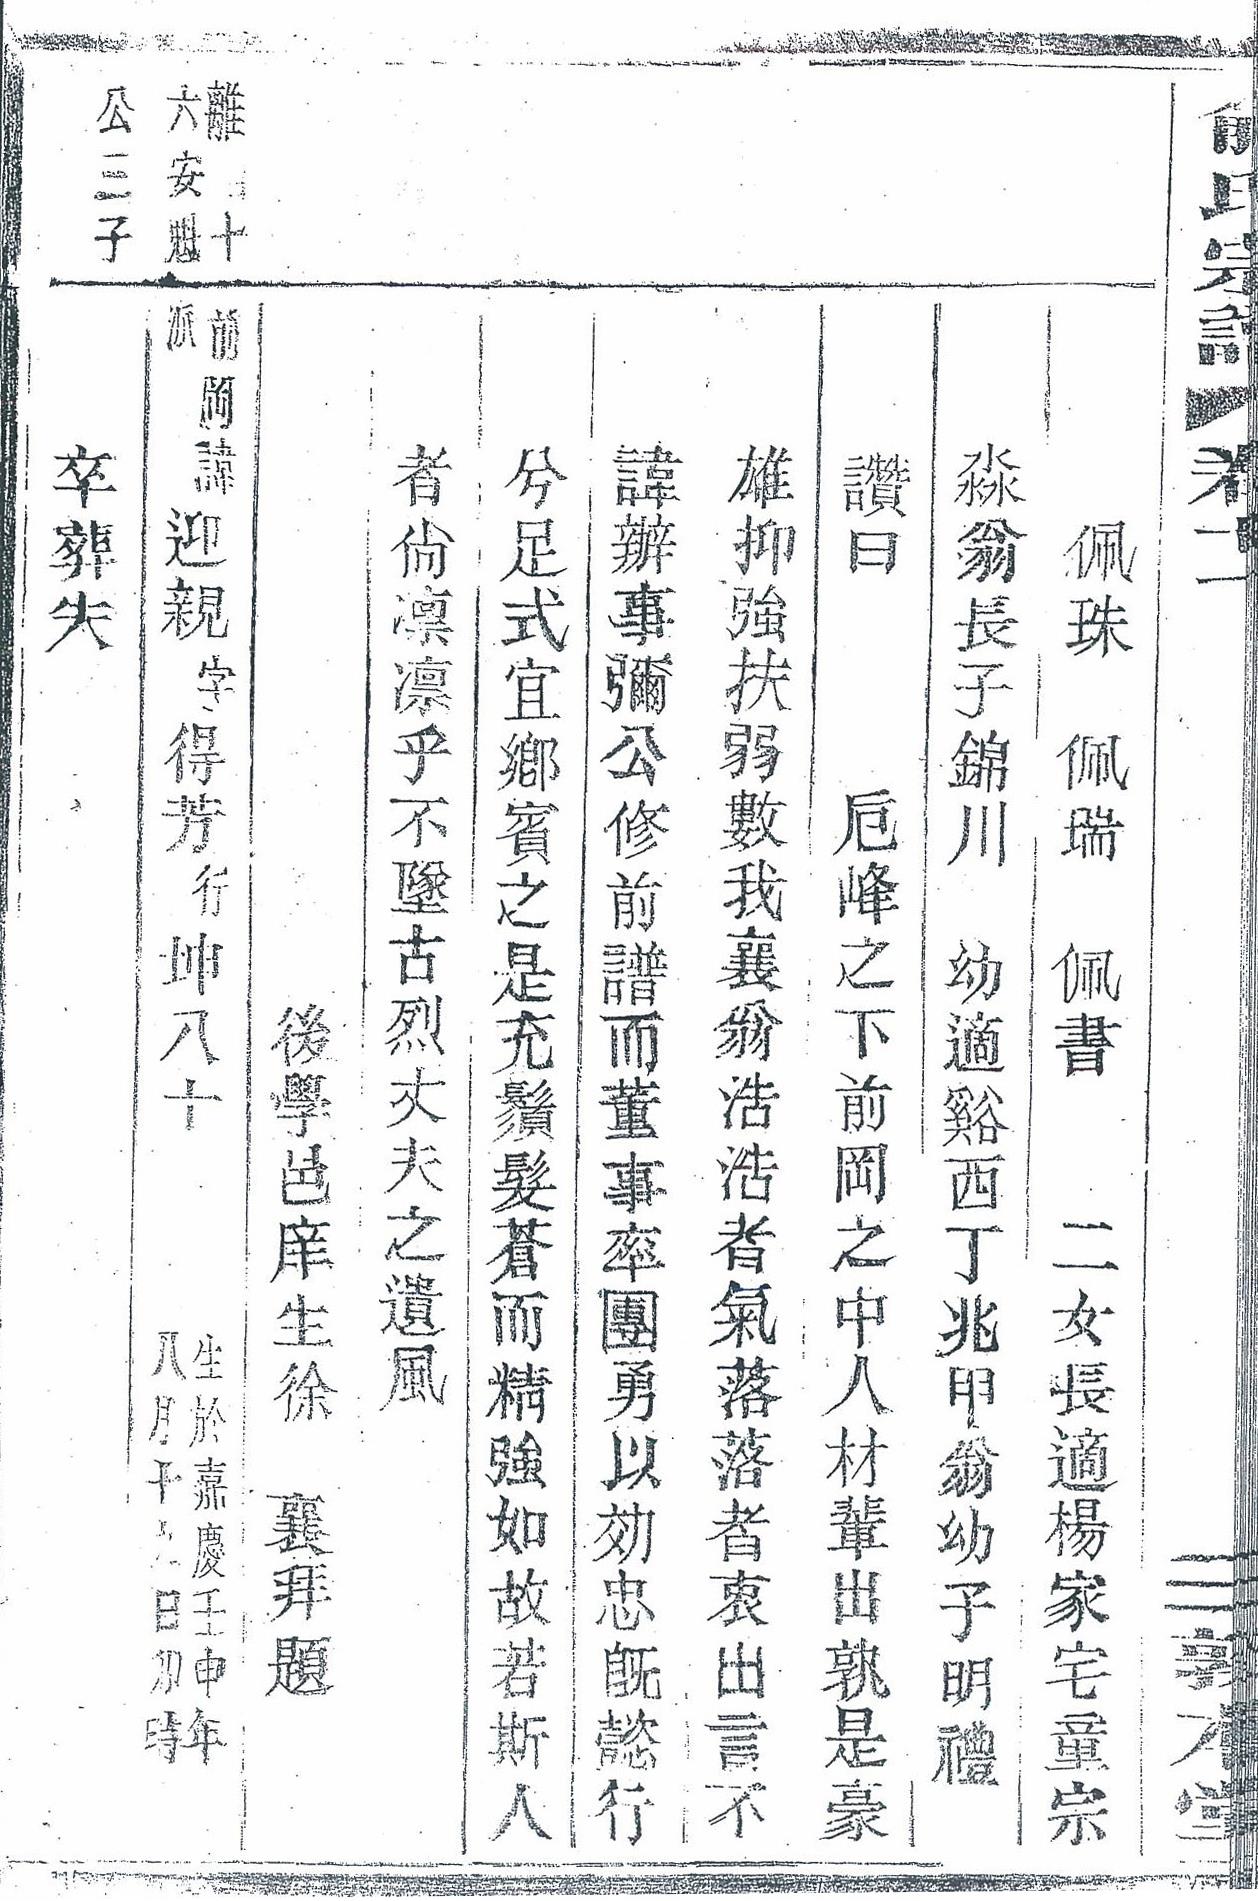 氏宗譜 卷十一 三 敦本堂
佩珠 佩瑞 佩書 二女長適楊家宅童宗
淼翁長子錦川 幼適谿西丁兆甲翁幼子明禮
讚曰 卮峰之下前岡之中人材輩出孰是豪
雄抑強扶弱數我襄翁浩浩者氣落落者衷出言不
諱辦事彌公修前譜而董事率團勇以効忠旣懿行
兮足式宜鄉賓之是充鬚髮蒼而精強如故若斯人
者尙凛凛乎不墜古烈丈夫之遺風
後學邑庠生徐 襄拜題
離 十
六安魁
公三子
前岡
派
諱迎親字得芳行坤八十
生於嘉慶壬申年
八月十 日卯時
卒葬失